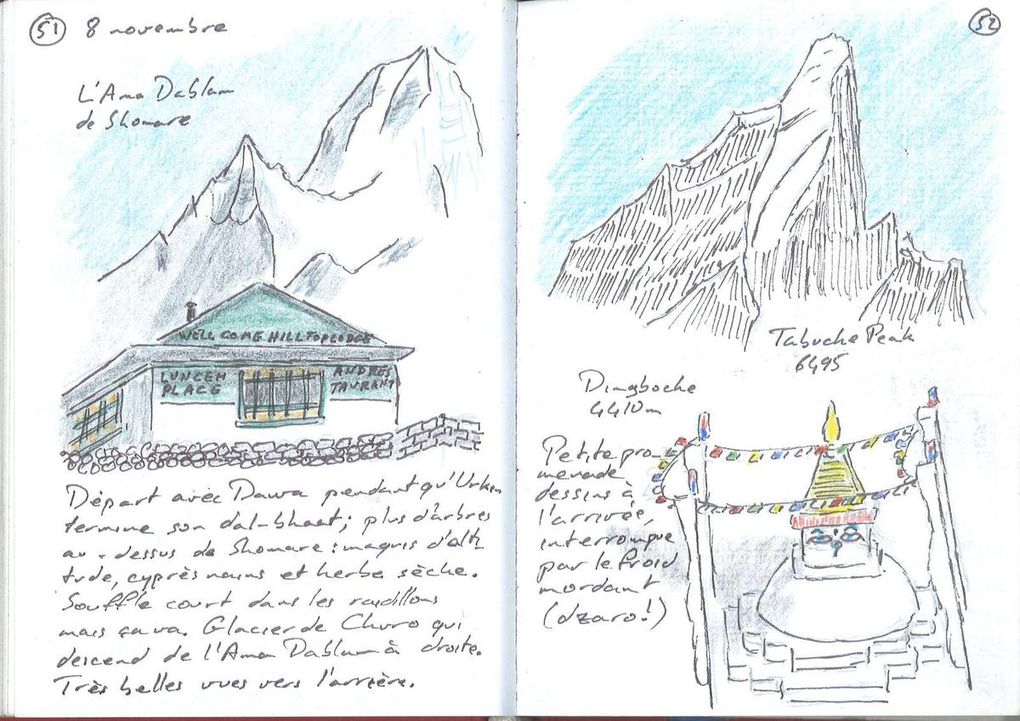 51 8 novembre
L'Ama Dablam
de Shomare
WELLCOME HILLTOPLODGE
LUNCEH
PLACE
ANDRES
TAURANT
Départ avec Dawa pendant qu'Urken
termine son dal-bhaat; plus d'arbres
au-dessus de Shomare: maquis d'alti
tude, cyprès nains et herbe sèche.
Souffle court dans les raidillons
mais ça va. Glacier de Churo qui
descend de l'Ama Dablam à droite.
Très belles vues vers l'arrière.
52
Tabuche Peak
6495
Dingboche
4410m
Petite pro-
menade
dessins à
l'arrivée,
interrompue
par le froid
mordant
(dzaro!)